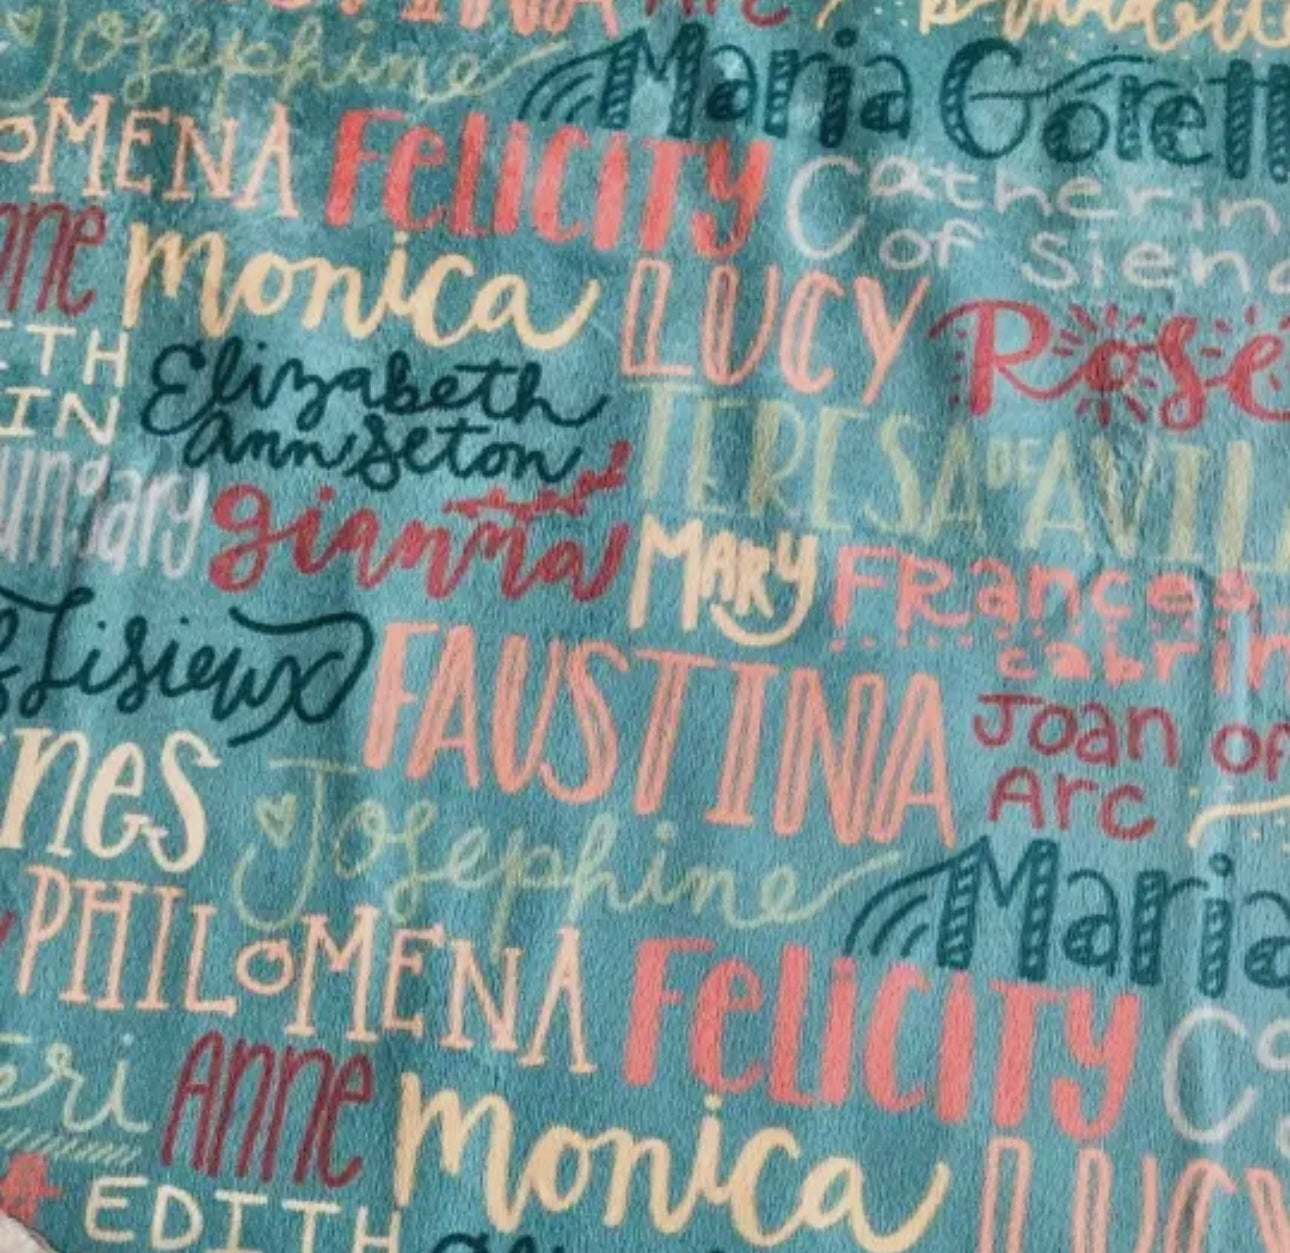 Josephine Maria Gorett
OMENA FELICITY Catherin
of siena
nne monica LUCY Rose
TH
IN Elizabeth
ann seton TERESA DE AVILA
gianna MARY Frances
cabrin
Lisieux FAUSTINA Joan of
Arc
nes Josephine Maria
PHILOMENA FELICITY Ca
eri Anne monica LUCY
EDITH